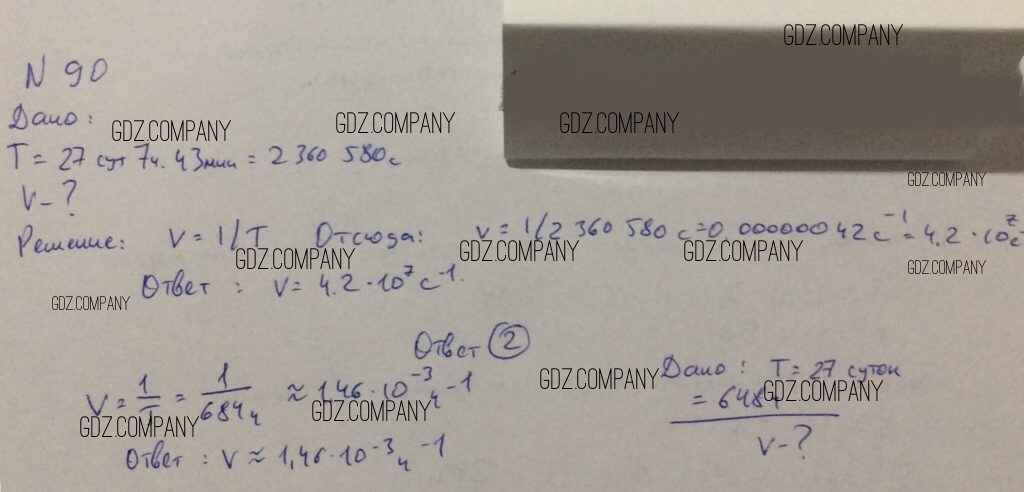 N 90
Дано:
T = 27 сут 7ч. 43мин = 2 360 580с
V - ?
Решение: V = 1/T Отсюда: V = 1/2 360 580 с = 0,00000042 с⁻¹ = 4.2 · 10⁷ с⁻
Ответ : V = 4.2 · 10⁷ с⁻¹.
Ответ 2
Дано : T = 27 суток
= 648ч
V - ?
V = 1/T = 1/684ч ≈ 1,46 · 10⁻³ ч⁻¹
Ответ : V ≈ 1,46 · 10⁻³ ч⁻¹
GDZ.COMPANY
GDZ.COMPANY
GDZ.COMPANY
GDZ.COMPANY
GDZ.COMPANY
GDZ.COMPANY
GDZ.COMPANY
GDZ.COMPANY
GDZ.COMPANY
GDZ.COMPANY
GDZ.COMPANY
GDZ.COMPANY
GDZ.COMPANY
GDZ.COMPANY